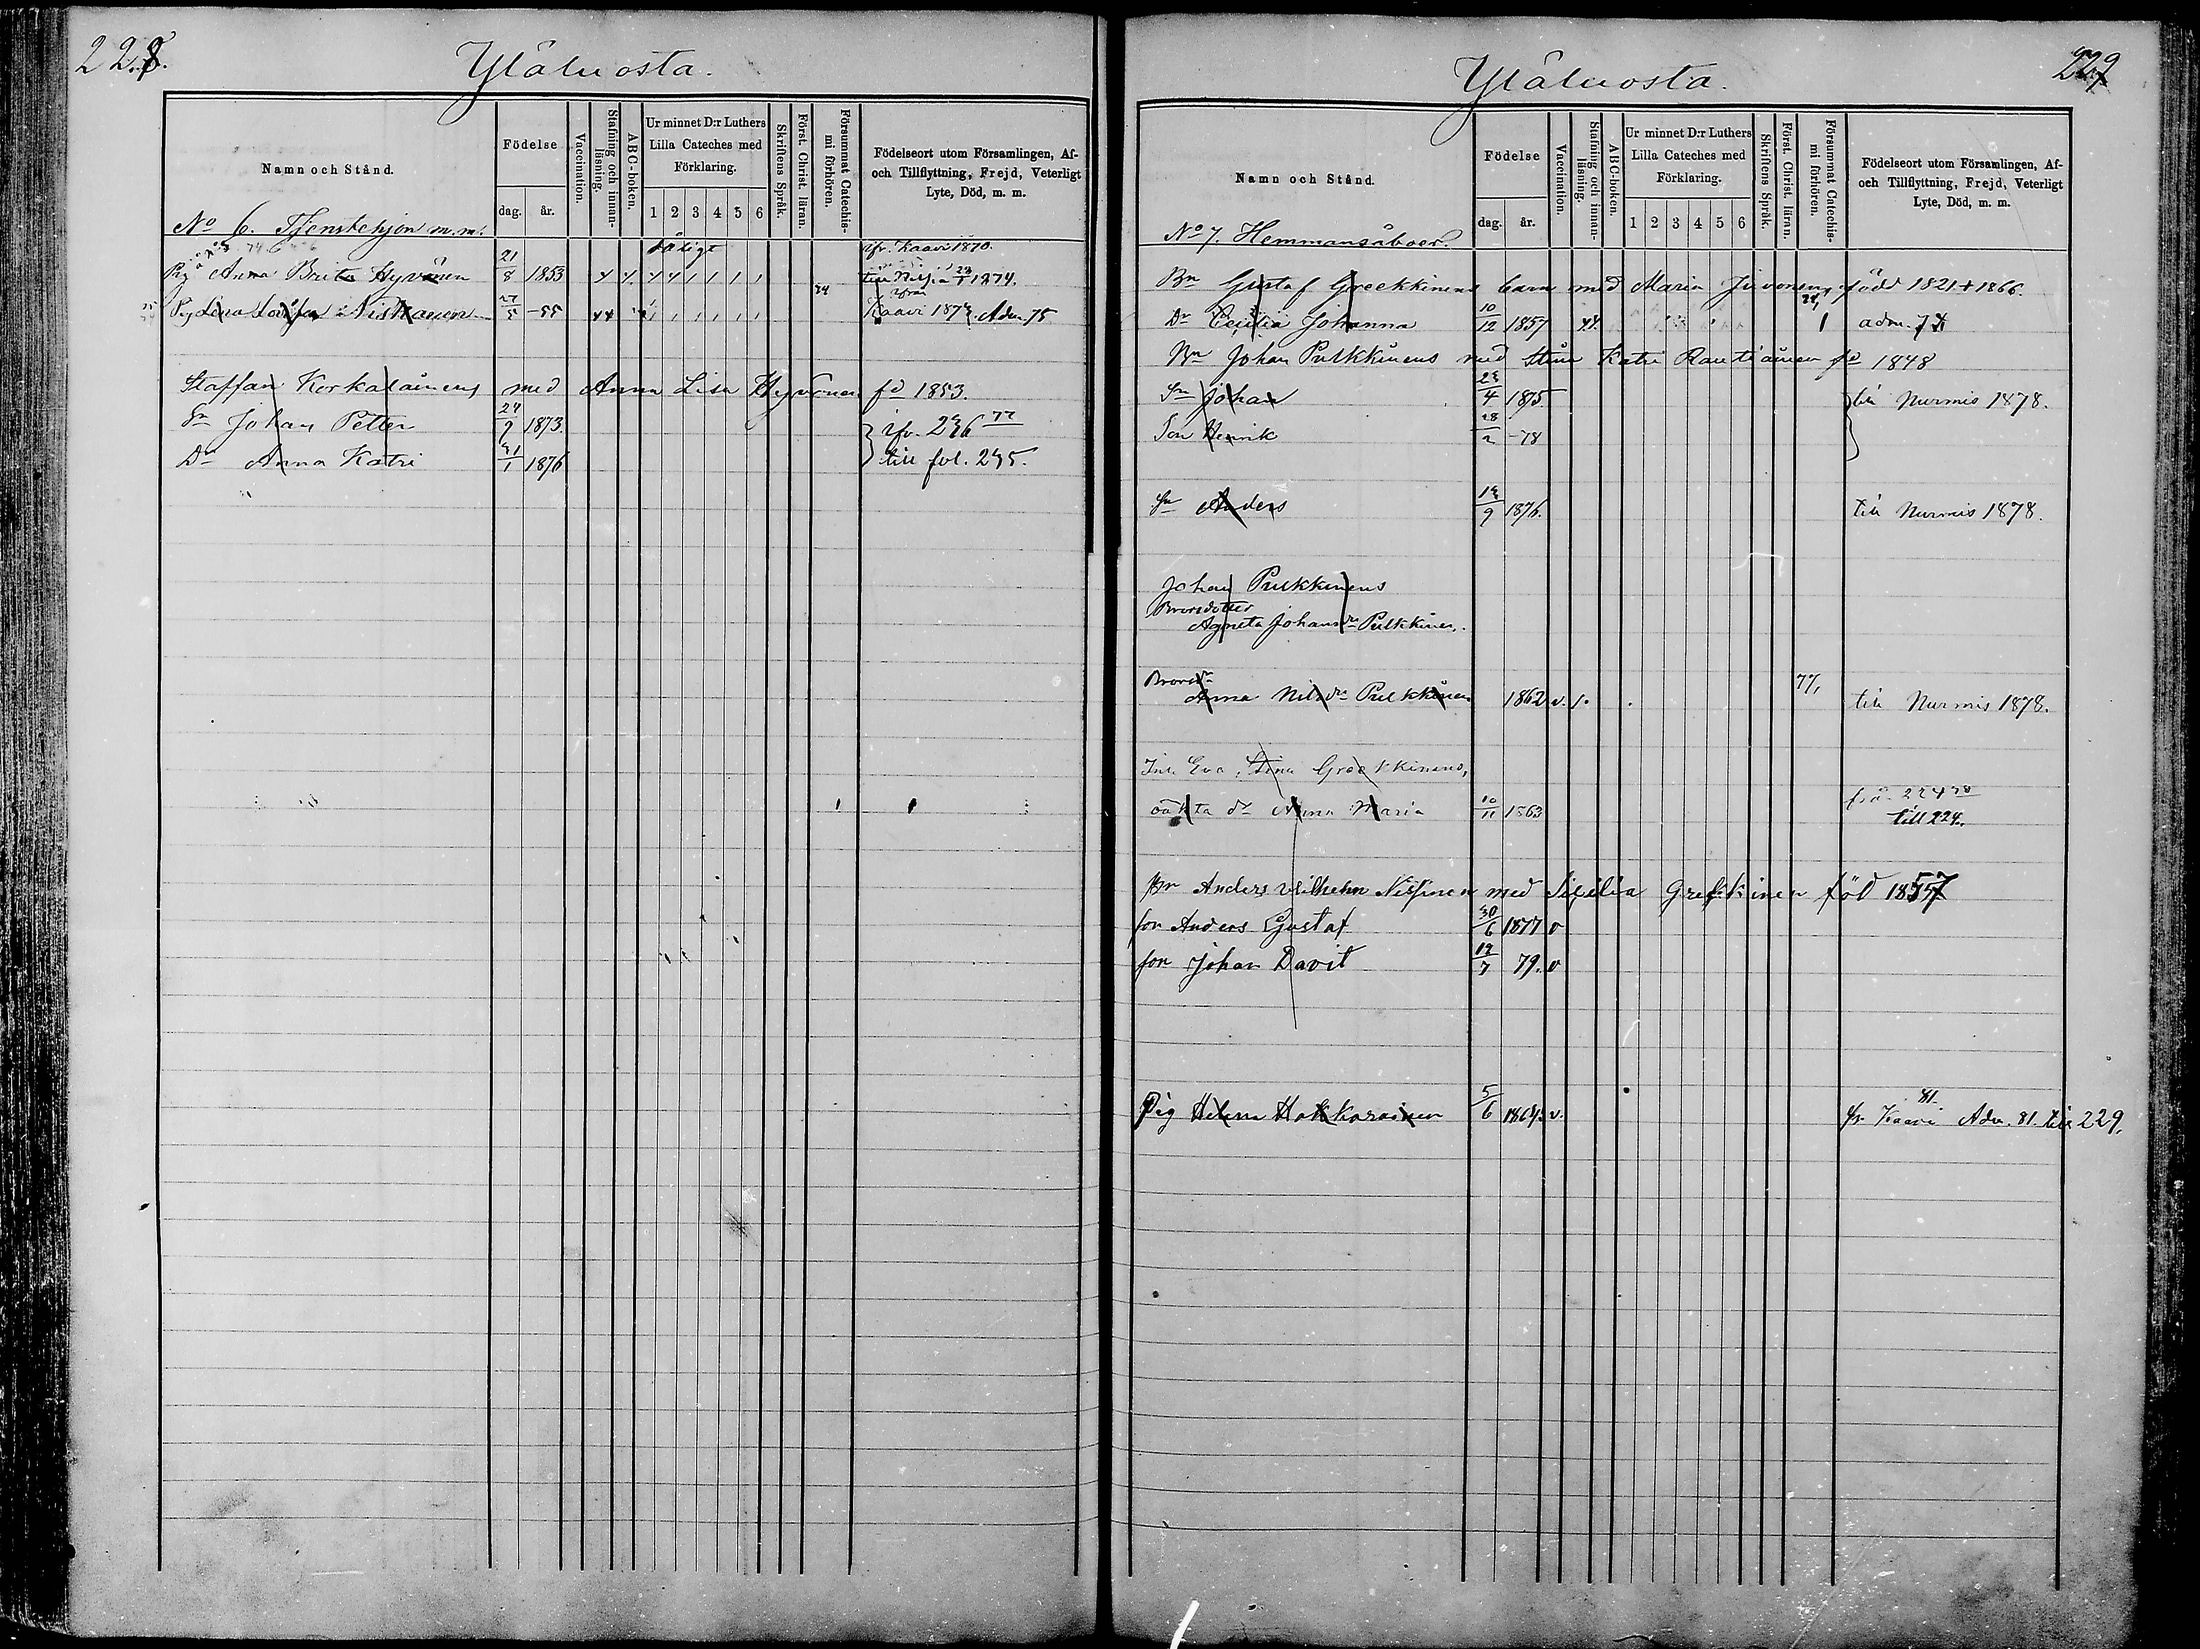 228.
Yläluosta.
Namn och Stånd.
Födelse
dag.
år.
Vaccination.
Stafning och innan-läsning.
ABC-boken.
Ur minnet D:r Luthers Lilla Cateches med Förklaring.
1 2 3 4 5 6
Skriftens Språk.
Först. Christ. läran.
Försummat Catechis-mi förhören.
Födelseort utom Församlingen, Af- och Tillflyttning, Frejd, Veterligt Lyte, Död, m. m.
No 6. Tjenstehjon m.m.
Pig Anna Brita Hyvönen 21/8 1853 ifr. Kaavi 1870. till Nilsiä 1874.
Pig Lena Lovisa Niskanen 27/5 -55 Kaavi 1873. Adm. 75
Staffan Korkalainens med Anna Lisa Hyvönen fd 1853.
Sn Johan Petter 24/9 1873. ifr. 236 77
Dr Anna Katri 31/1 1876 till fol. 235.
229
Yläluosta.
Namn och Stånd.
Födelse
dag.
år.
Vaccination.
Stafning och innan-läsning.
ABC-boken.
Ur minnet D:r Luthers Lilla Cateches med Förklaring.
1 2 3 4 5 6
Skriftens Språk.
Först. Christ. läran.
Försummat Catechis-mi förhören.
Födelseort utom Församlingen, Af- och Tillflyttning, Frejd, Veterligt Lyte, Död, m. m.
No 7. Hemmansåboer.
Bn Gustaf Greekkinens barn med Maria Juvonen född 1821 + 1866.
Dr Cecilia Johanna 10/12 1857 1 adm. 74
Bn Johan Pulkkinens med Stina Katri Rautiainen fd 1848
Sn Johan 23/4 1875. till Nurmis 1878.
Son Henrik 28/2 -78
Sn Anders 13/9 1876. till Nurmis 1878.
Johan Pulkkinens
Brorsdotter
Agneta Johans dr Pulkkinen.
Brors dr
Anna Nils dr Pulkkinen 1862 v. 77/1 till Nurmis 1878.
Inh. Eva Stina Greekkinens,
oäkta dr Anna Maria 10/11 1863 från 224 78
till 224.
Bn Anders Vilhelm Nissinen med Sicilia Grekkinen föd 1857
son Anders Gustaf 30/6 1877 v
son Johan Davit 19/7 79. v
Pig Helena Hakkarainen 5/6 1864. v. fr Kaavi 81 Adm. 81. till 229.